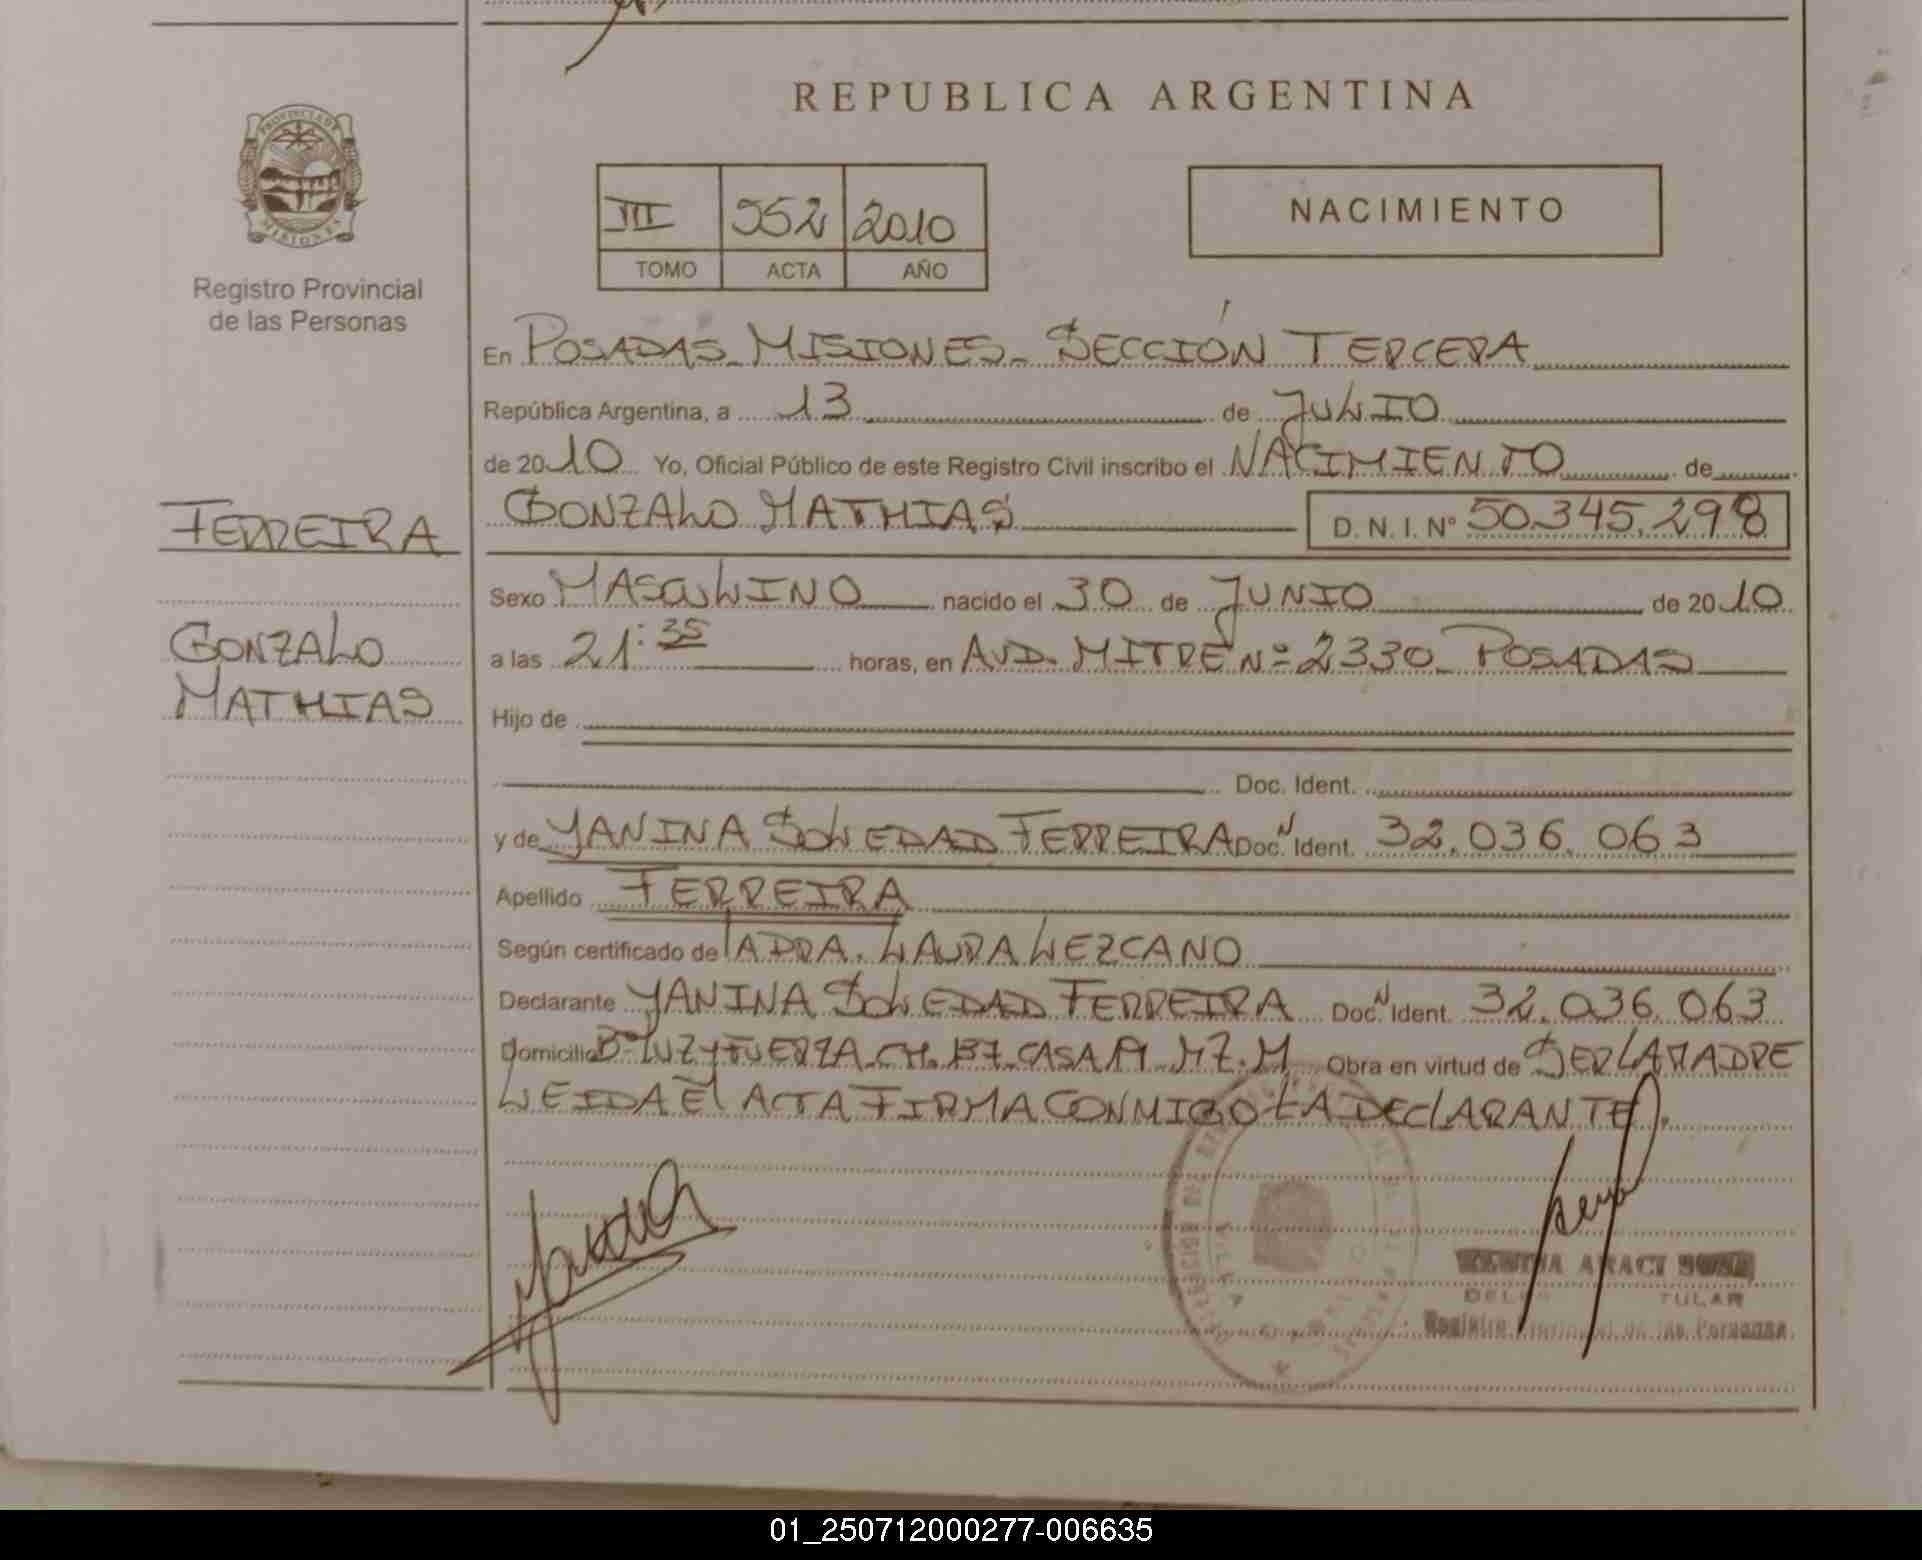 REPUBLICA ARGENTINA
PROVINCIA DE
MISIONES
Registro Provincial
de las Personas
III 552 2010
TOMO ACTA AÑO
NACIMIENTO
En POSADAS - MISIONES - SECCIÓN TERCERA
República Argentina, a 13 de JULIO
de 2010 Yo, Oficial Público de este Registro Civil inscribo el NACIMIENTO de
GONZALO MATHIAS D. N. I. Nº 50.345.298
FERREIRA
GONZALO
MATHIAS
Sexo MASCULINO nacido el 30 de JUNIO de 2010
a las 21:35 horas, en AVD. MITRE Nº 2330 - POSADAS
Hijo de
Doc. Ident.
y de YANINA SOLEDAD FERREIRA Doc. N Ident. 32.036.063
Apellido FERREIRA
Según certificado de la DRA. LAURA LEZCANO
Declarante YANINA SOLEDAD FERREIRA Doc. N Ident. 32.036.063
Domicilio Bº LUZ Y FUERZA - CH. 137 - CASA MZ. M Obra en virtud de SER LA MADRE
LEIDA El ACTA FIRMA CONMIGO LA DEClARANTE.
ARACI
TULAR
Registro de las Personas
01_250712000277-006635